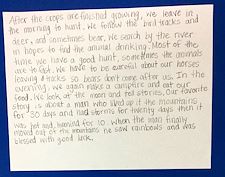 After the crops are finished growing, we leave in
the morning to hunt. We follow the bird tracks and
deer, and sometimes bear. We serch by the river
in hopes to find the animal drinking. Most of the
time we have a good hunt, sometimes the animals
are to fast. We have to be careful about our horses
leaving tracks so bears don't come after us. In the
evening, we again make a campfire and eat our
food. We look at the moon and tell stories. Our favorite
story is about a man who lived up it the mountains
for 30 days and had storms for twenty days then it
was hot and for 10. When the man finally
moved out of the mountains he saw rainbows and was
blessed with good luck.